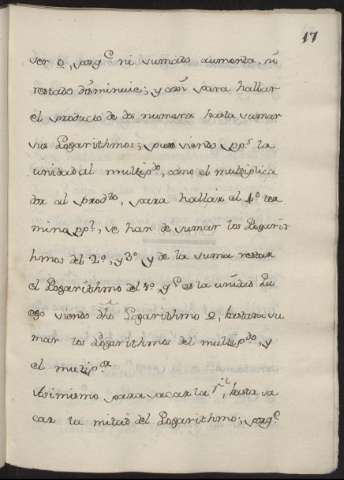 17
ser 0, porq.e ni sumado aumenta, ni
restado disminuie; y assi para hallar
el producto de dos numeros basta sumar
sus Logarithmos; pues siendo pp.l la
unidad al multip.do, como el multiplica
dor al prod.to, para hallar el 4.o ter
mino pp.l, se han de sumar los Logarit
hmos del 2.o, y 3.o y de la suma restar
el Logarithmo del 1.o y q.e es la unidad Lu
ego siendo Logarithmo 0, bastara su
mar los Logarithmos del multip.do, y
el multip.or
Asimismo para sacar la r.z, basta sa
car la mitad del Logarithmo; porq.e